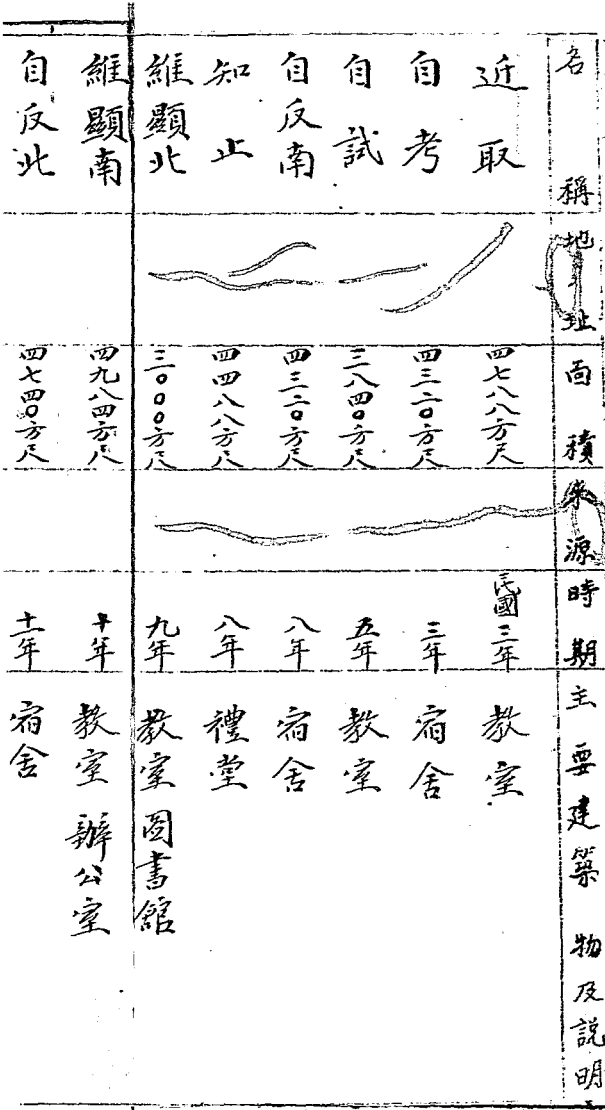 名稱 地址 面積 來源 時期 主要建築物及説明
近取 四七八八方尺 民國三年 教室
自考 四三二〇方尺 三年 宿舍
自試 三八四〇方尺 五年 教室
自反南 四三二〇方尺 八年 宿舍
知止 四四八八方尺 八年 禮堂
維顯北 三〇〇〇方尺 九年 教室圖書館
維顯南 四九八四方尺 十年 教室辦公室
自反北 四七四〇方尺 十一年 宿舍